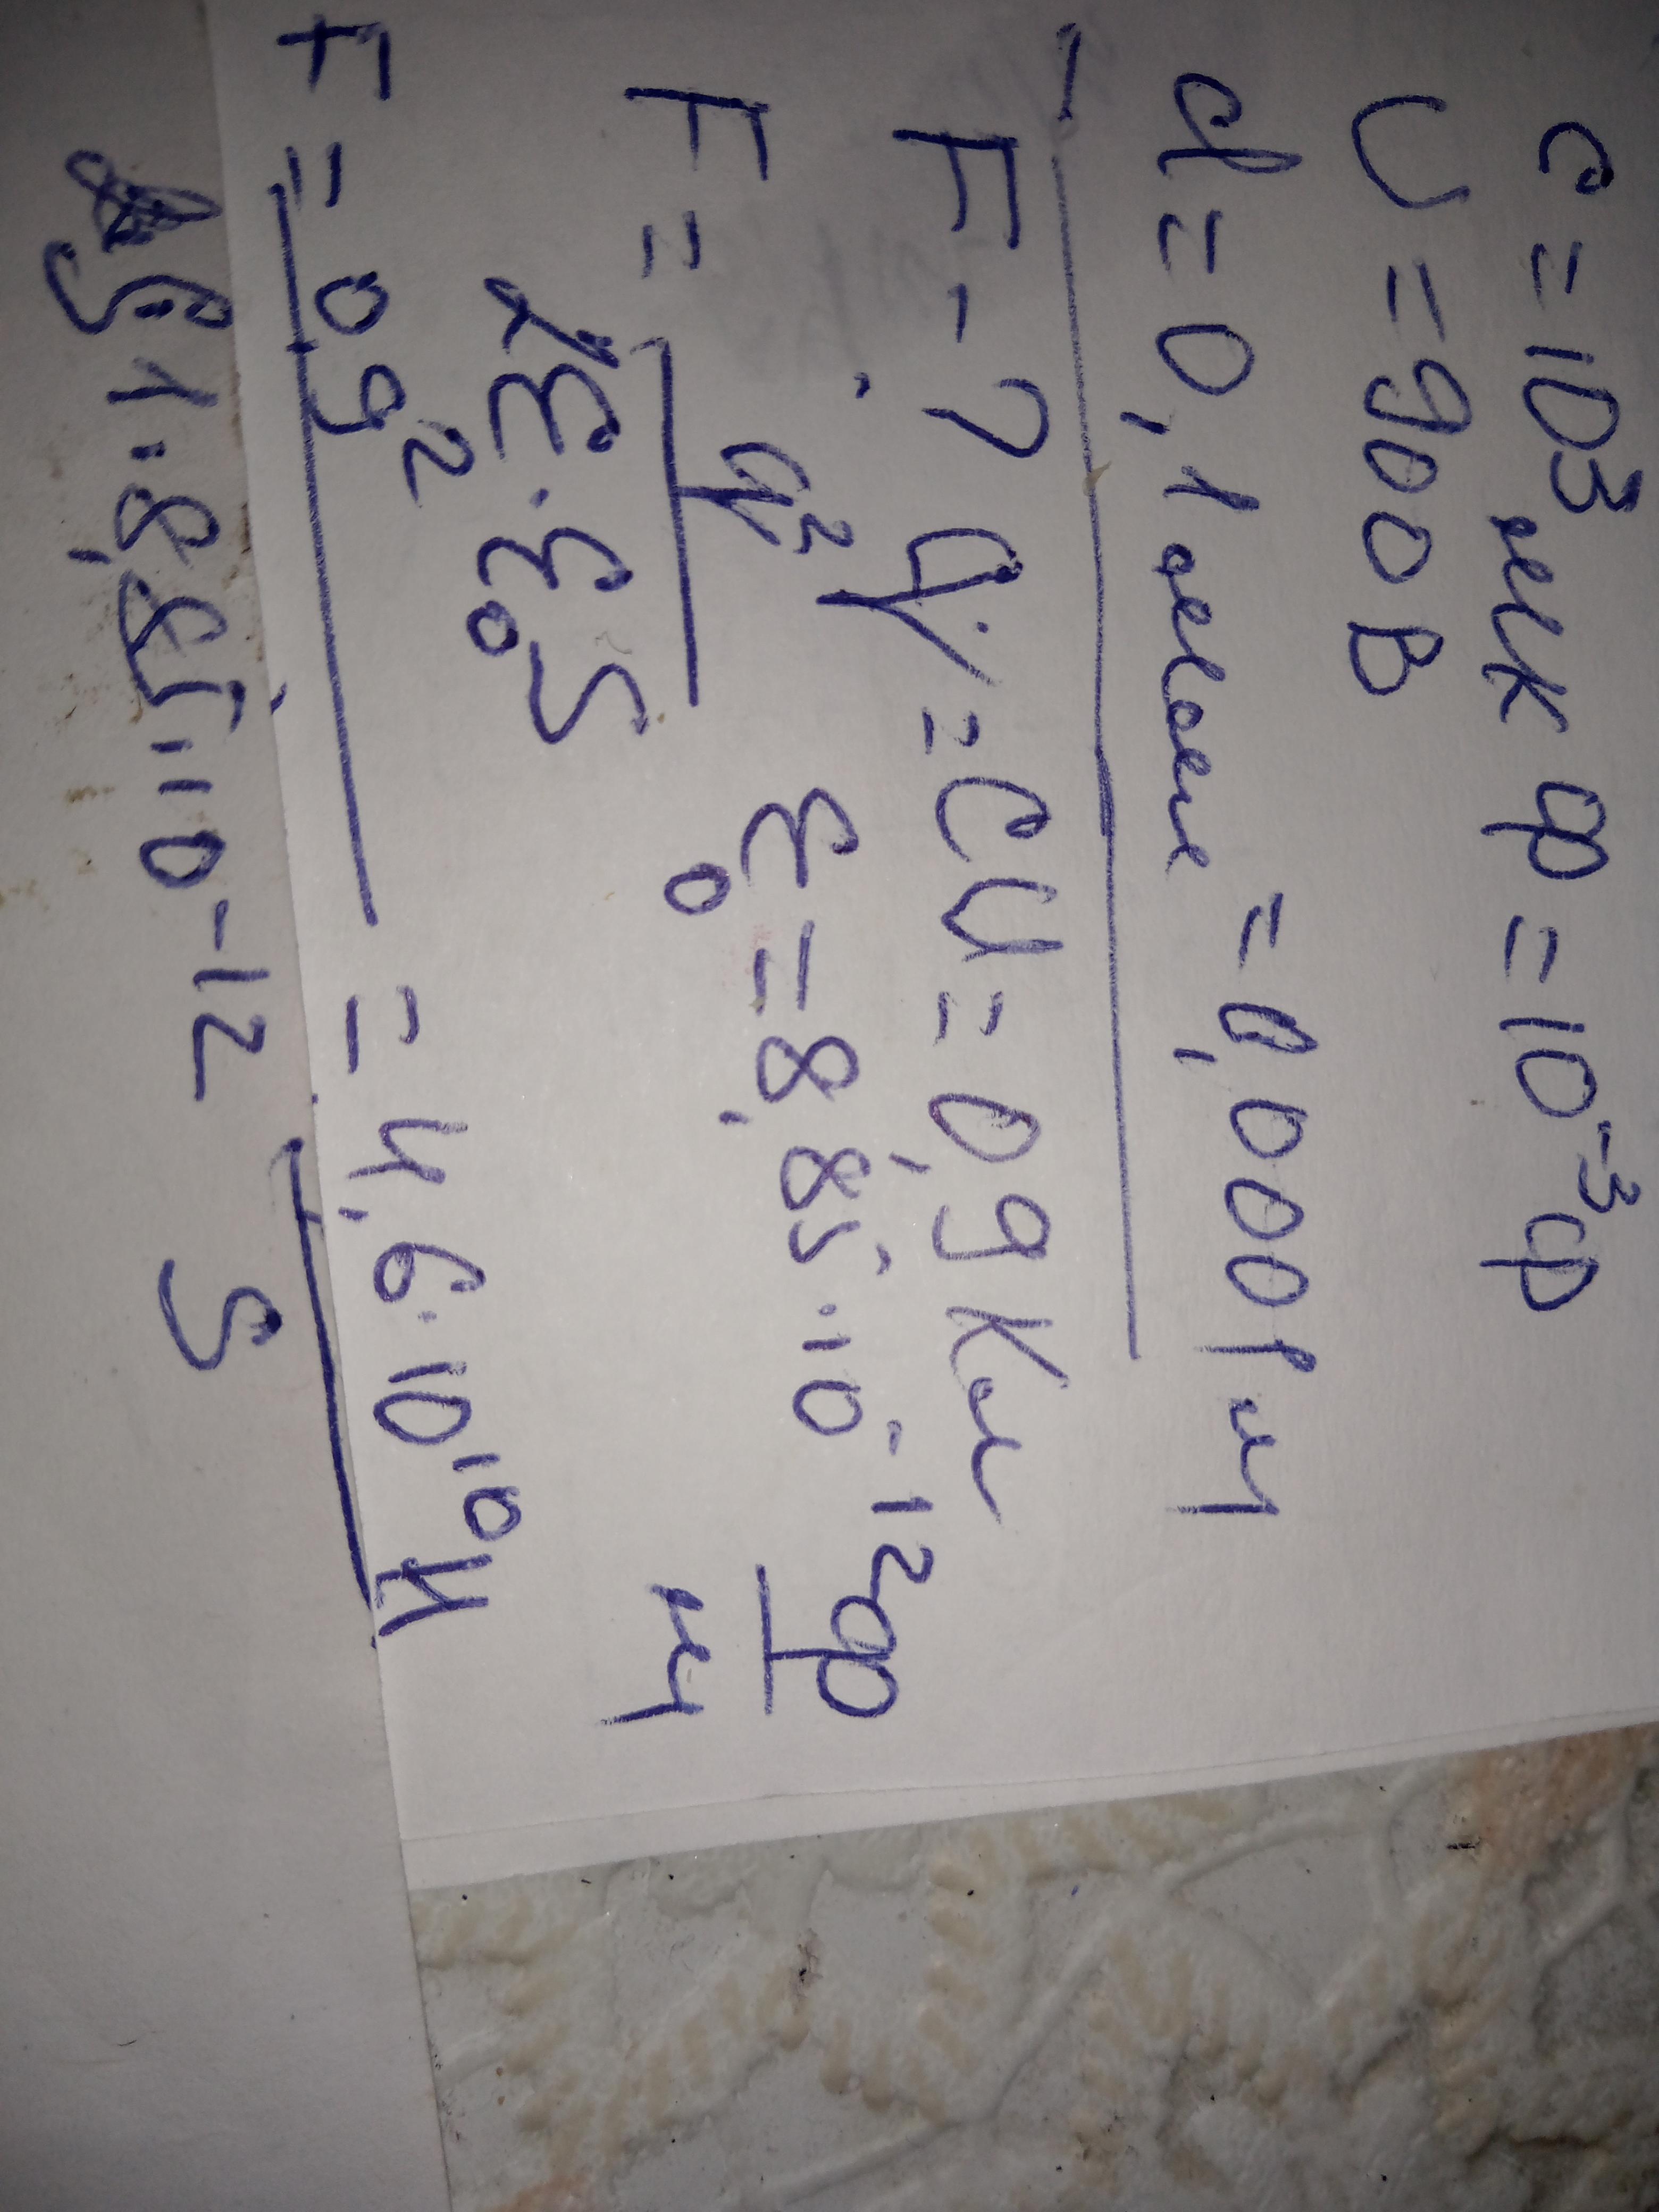 C = 10³ мкФ = 10⁻³ Ф
U = 900 В
d = 0,1 мм = 0,0001 м
F - ? q = CU = 0,9 Кл
F = q² / 2ε·ε₀S ε₀ = 8,85·10⁻¹² Ф/м
F = 0,9² / 1·8,85·10⁻¹² S = 4,6·10¹⁰ Н / S